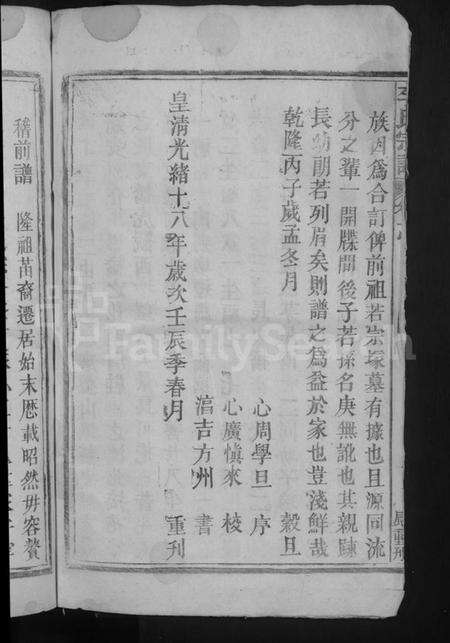 族因為合訂俾前祖若宗塚墓有據也且源同流
分之輩一開牒間後子若孫名庚無訛也其親踈
長幼朗若列眉矣則譜之為益於家也豈淺鮮哉
乾隆丙子歲孟冬月 穀旦
心周學旦 序
心廣慎來 梭
滔吉方州 書
皇清光緒十八年歲次壬辰季春月 重刋
稽前譜 隆祖苗裔遷居始末歷載昭然毋容贅
FamilySearch